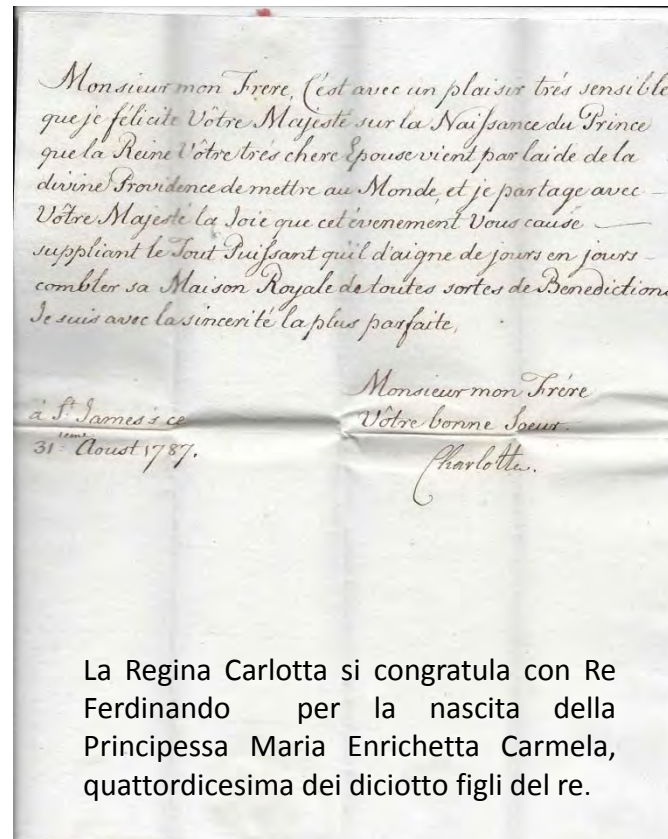 Monsieur mon Frere, C'est avec un plaisir trés sensible
que je félicite Vôtre Majesté sur la Naissance du Prince
que la Reine Vôtre trés chere Epouse vient par laide de la
divine Providence de mettre au Monde, et je partage avec
Vôtre Majesté la Joie que cet évenement Vous cause
suppliant le Tout Puissant qu'il d'aigne de jours en jours
combler sa Maison Royale de toutes sortes de Benediction
Je suis avec la sincerité la plus parfaite,
Monsieur mon Frére
Vôtre bonne Soeur.
Charlotte.
à St. James's ce
31ieme Aoust 1787.
La Regina Carlotta si congratula con Re
Ferdinando per la nascita della
Principessa Maria Enrichetta Carmela,
quattordicesima dei diciotto figli del re.